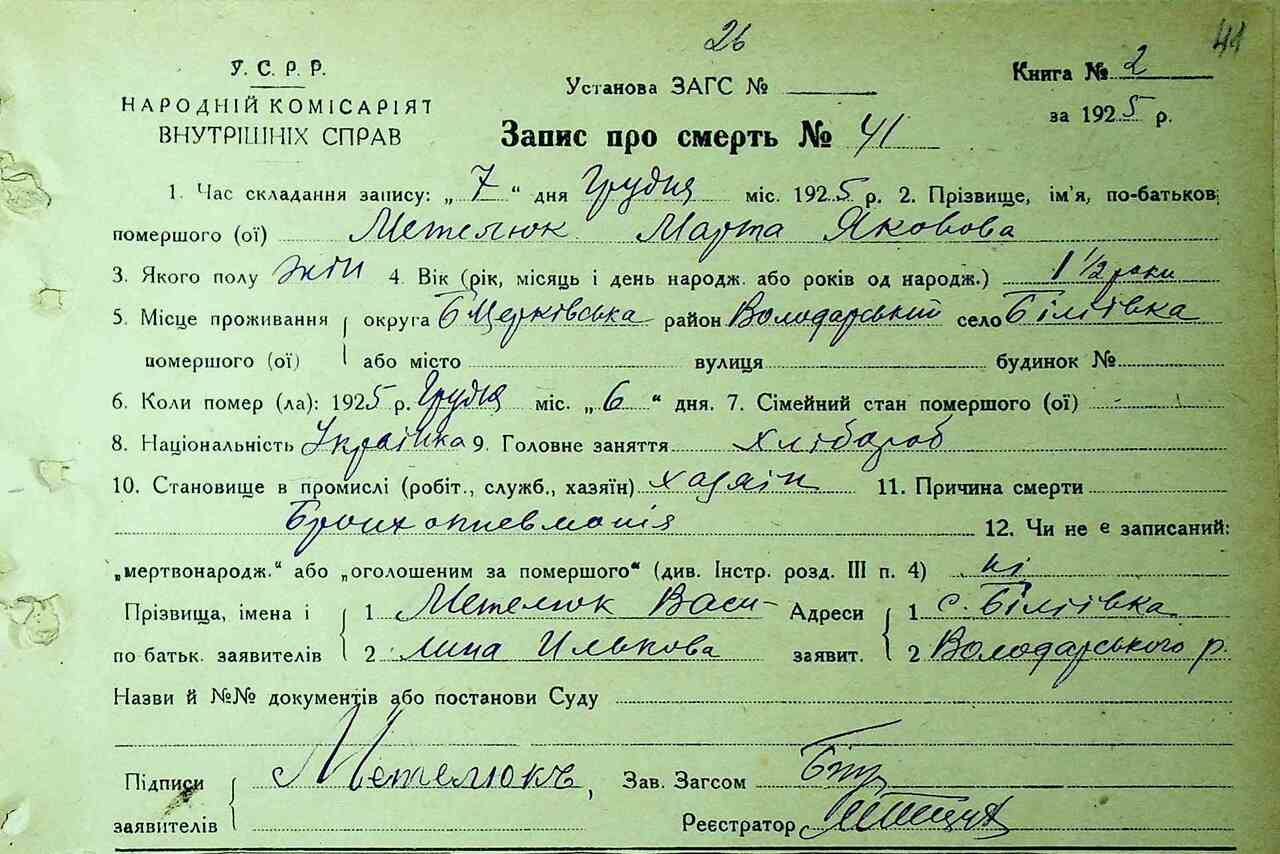 26
41
У. С. Р. Р.
НАРОДНІЙ КОМІСАРІЯТ
ВНУТРІШНІХ СПРАВ
Установа ЗАГС №
Книга № 2
за 1925 р.
Запис про смерть № 41
1. Час складання запису: „ 7 “ дня Грудня міс. 1925 р. 2. Прізвище, ім'я, по-батьков
помершого (ої) Метелюк Марта Яковова
3. Якого полу жін 4. Вік (рік, місяць і день народж. або років од народж.) 1 1/2 роки
5. Місце проживання округа БЦерківська район Володарський село Біліївка
помершого (ої) або місто вулиця будинок №
6. Коли помер (ла): 1925 р. Грудня міс. „ 6 “ дня. 7. Сімейний стан помершого (ої)
8. Національність Українка 9. Головне заняття хлібороб
10. Становище в промислі (робіт., служб., хазяїн) хазяїн 11. Причина смерти
Бронхопневмонія 12. Чи не є записаний:
„мертвонародж.“ або „оголошеним за помершого“ (див. Інстр. розд. III п. 4) ні
Прізвища, імена і 1 Метелюк Васи- Адреси 1 с. Біліївка
по батьк. заявителів 2 лина Илькова заявит. 2 Володарського р.
Назви й №№ документів або постанови Суду
Підписи Метелюкъ, Зав. Загсом
заявителів Реєстратор